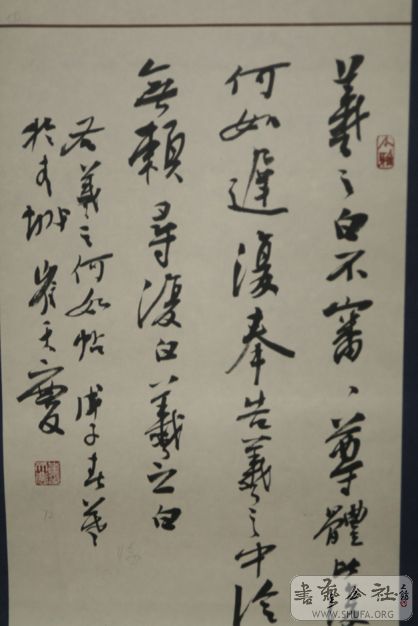 羲之白不審、尊體比復
何如遲復奉告羲之中冷
無賴尋復白羲之白
右羲之何如帖 戊子春暮
於
書藝公社
WWW.SHUFA.ORG